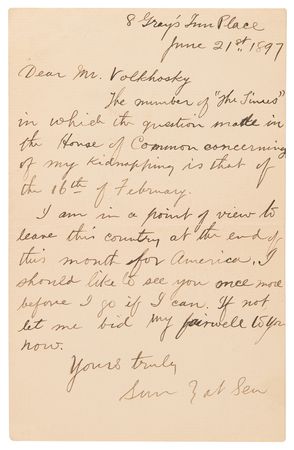 8 Gray's Inn Place
June 21st. 1897
Dear Mr. Volkhosky
The number of "The Times"
in which the question made in
the House of Common concerning
of my kidnapping is that of
the 16th of February.
I am in a point of view to
leave this country at the end of
this month for America. I
should like to see you once more
before I go if I can. If not
let me bid my fairwell to you
now.
Yours truly
Sun Yat Sen